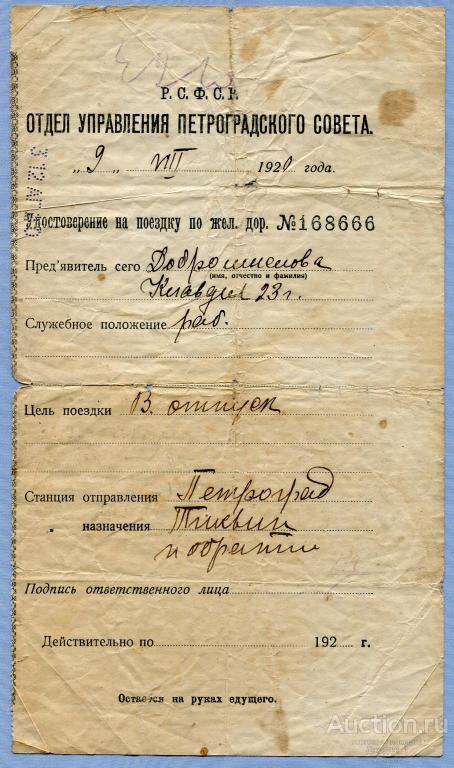 Р. С. Ф. С. Р.
ОТДЕЛ УПРАВЛЕНИЯ ПЕТРОГРАДСКОГО СОВЕТА.
„ 9 „ VIII 1920 года.
Удостоверение на поездку по жел. дор. №168666
Пред'явитель сего Добромыслова
(имя, отчество и фамилия)
Клавдия 23 г.
Служебное положение раб.
Цель поездки В отпуск
Станция отправления Петроград
„ назначения Тихвин
и обратно
Подпись ответственного лица
Действительно по 192 г.
Остается на руках едущего.
Auction.ru